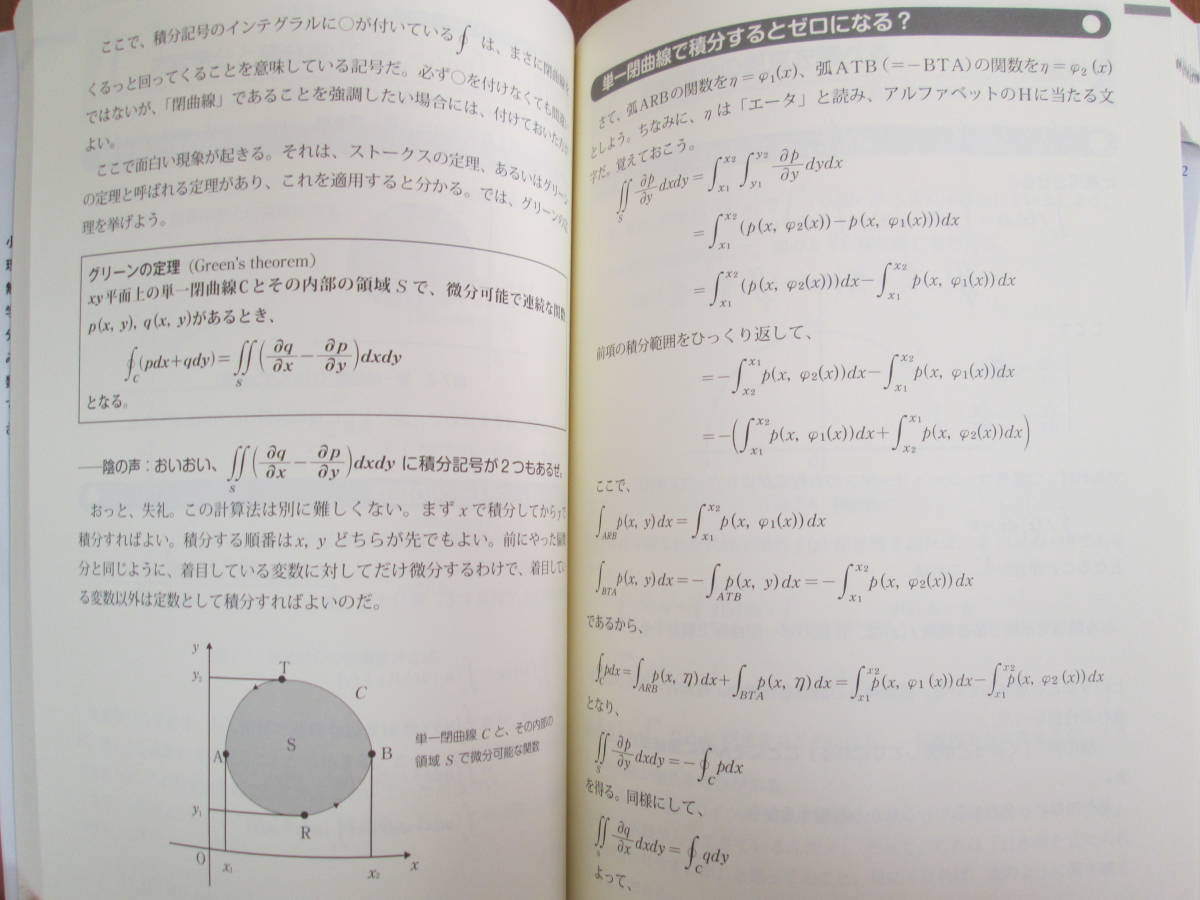 ここで、積分記号のインテグラルに○が付いている∮は、まさに閉曲線を
くるっと回ってくることを意味している記号だ。必ず○を付けなくても間違い
ではないが、「閉曲線」であることを強調したい場合には、付けておいた方が
よい。
ここで面白い現象が起きる。それは、ストークスの定理、あるいはグリーン
の定理と呼ばれる定理があり、これを適用すると分かる。では、グリーンの定
理を挙げよう。
グリーンの定理（Green's theorem）
xy平面上の単一閉曲線Cとその内部の領域Sで、微分可能で連続な関数
p(x, y), q(x, y)があるとき、
∮_C (pdx+qdy)=∬_S (∂q/∂x − ∂p/∂y)dxdy
となる。
──陰の声：おいおい、∬_S (∂q/∂x − ∂p/∂y)dxdy に積分記号が2つもあるぜ。
おっと、失礼。この計算法は別に難しくない。まずxで積分してからyで
積分すればよい。積分する順番はx, yどちらが先でもよい。前にやった偏微
分と同じように、着目している変数に対してだけ微分するわけで、着目してい
る変数以外は定数として積分すればよいのだ。
y
y₂
T
C
A
S
B
y₁
R
O
x₁
x₂
x
単一閉曲線Cと、その内部の
領域Sで微分可能な関数
単一閉曲線で積分するとゼロになる？
さて、弧ARBの関数をη=φ₁(x)、弧ATB(=−BTA)の関数をη=φ₂(x)
としよう。ちなみに、ηは「エータ」と読み、アルファベットのHに当たる文
字だ。覚えておこう。
∬_S ∂p/∂y dxdy=∫_{x1}^{x2}∫_{y1}^{y2} ∂p/∂y dydx
=∫_{x1}^{x2}(p(x, φ₂(x))−p(x, φ₁(x)))dx
=∫_{x1}^{x2}(p(x, φ₂(x)))dx−∫_{x1}^{x2}p(x, φ₁(x))dx
前項の積分範囲をひっくり返して、
=−∫_{x2}^{x1}p(x, φ₂(x))dx−∫_{x1}^{x2}p(x, φ₁(x))dx
=−(∫_{x1}^{x2}p(x, φ₁(x))dx+∫_{x2}^{x1}p(x, φ₂(x))dx)
ここで、
∫_{ARB}p(x, y)dx=∫_{x1}^{x2}p(x, φ₁(x))dx
∫_{BTA}p(x, y)dx=−∫_{ATB}p(x, y)dx=−∫_{x1}^{x2}p(x, φ₂(x))dx
であるから、
∮_C pdx=∫_{ARB}p(x, η)dx+∫_{BTA}p(x, η)dx=∫_{x1}^{x2}p(x, φ₁(x))dx−∫_{x1}^{x2}p(x, φ₂(x))dx
となり、
∬_S ∂p/∂y dxdy=−∮_C pdx
を得る。同様にして、
∬_S ∂q/∂x dxdy=∮_C qdy
よって、